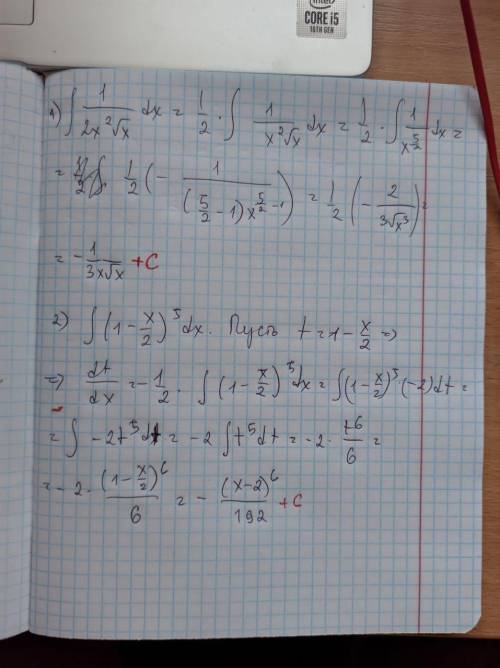 intel
CORE i5
10TH GEN
1) ∫ 1/(2x²√x) dx = 1/2 · ∫ 1/(x²√x) dx = 1/2 · ∫ 1/x^(5/2) dx =
= 1/2 (- 1/((5/2 - 1)x^(5/2 - 1))) = 1/2 (- 2/(3√x³)) =
= - 1/(3x√x) + C
2) ∫ (1 - x/2)⁵ dx. Пусть t = 1 - x/2 =>
=> dt/dx = - 1/2 . ∫ (1 - x/2)⁵ dx = ∫ (1 - x/2)⁵ · (-2) dt =
= ∫ -2t⁵ dt = -2 ∫ t⁵ dt = -2 · t⁶/6 =
= -2 · (1 - x/2)⁶/6 = - (x-2)⁶/192 + C